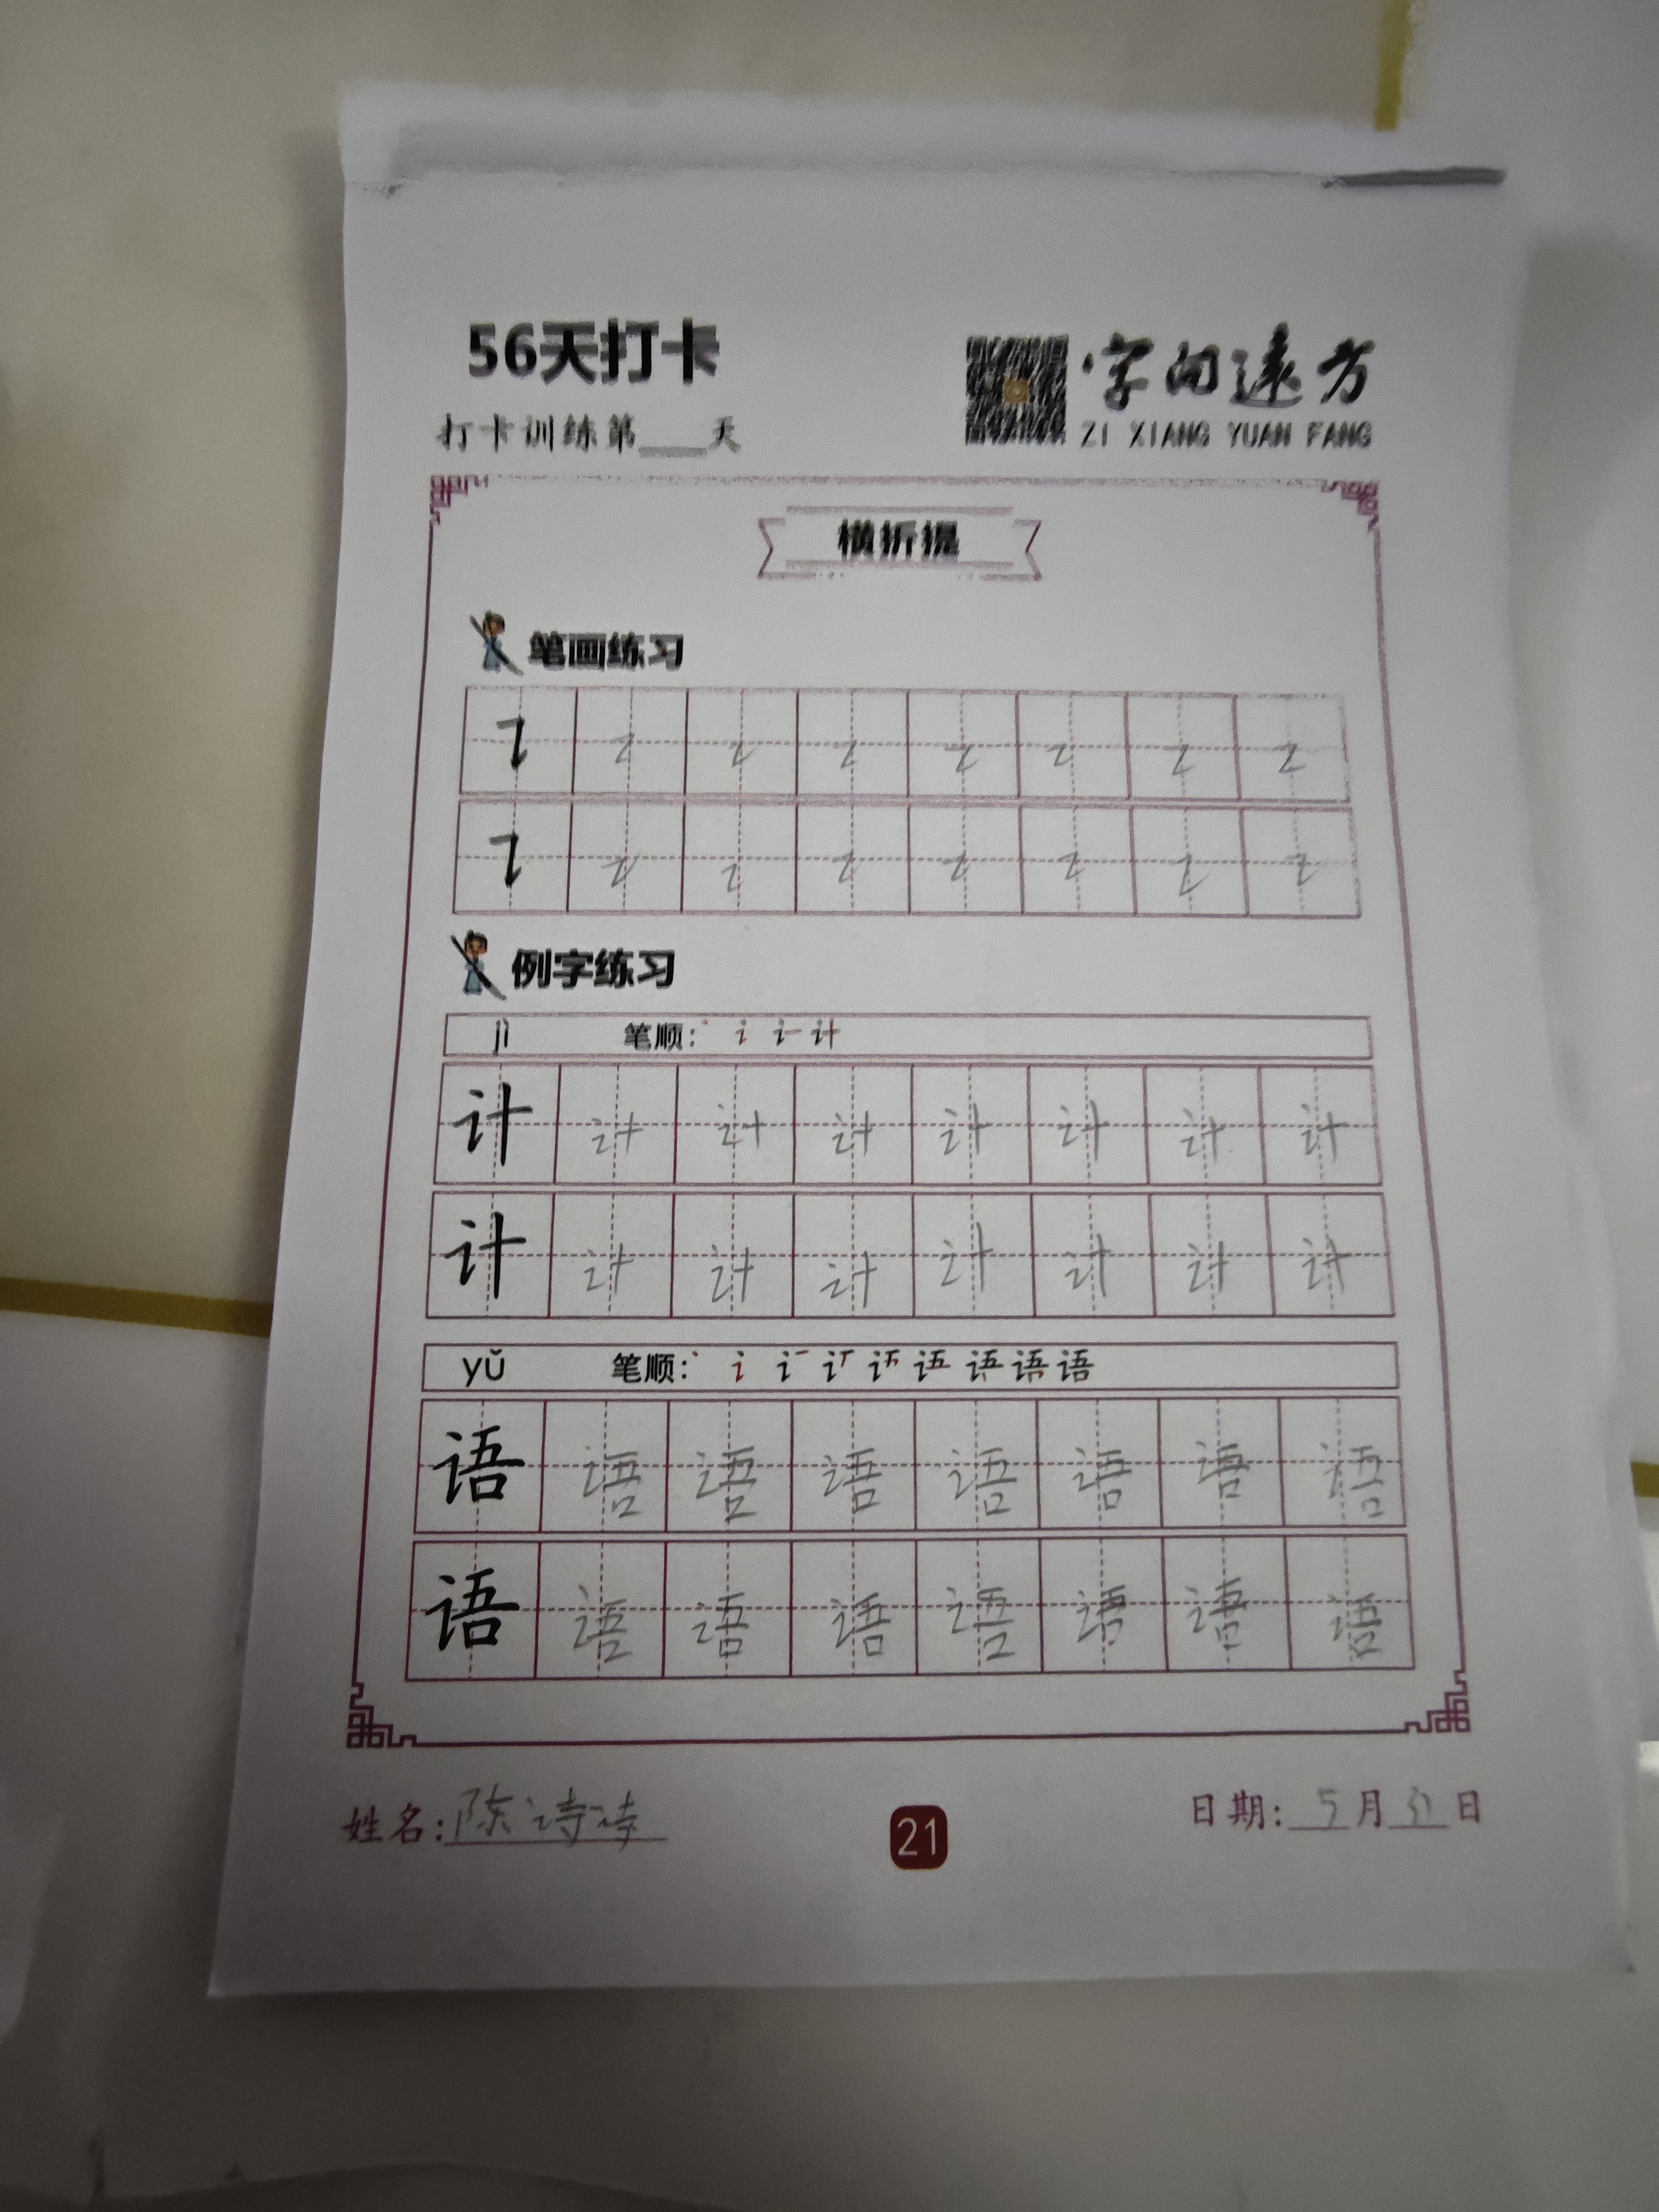 56天打卡
字向远方
打卡训练第___天
ZI XIANG YUAN FANG
横折提
笔画练习
㇊ ㇊ ㇊ ㇊ ㇊ ㇊ ㇊ ㇊
㇊ ㇊ ㇊ ㇊ ㇊ ㇊ ㇊ ㇊
例字练习
jì 笔顺:
计 计 计 计 计 计 计 计
计 计 计 计 计 计 计 计
yǔ 笔顺:
语 语 语 语 语 语 语 语
语 语 语 语 语 语 语 语
姓名: 陈诗诗
21
日期: 5月31日